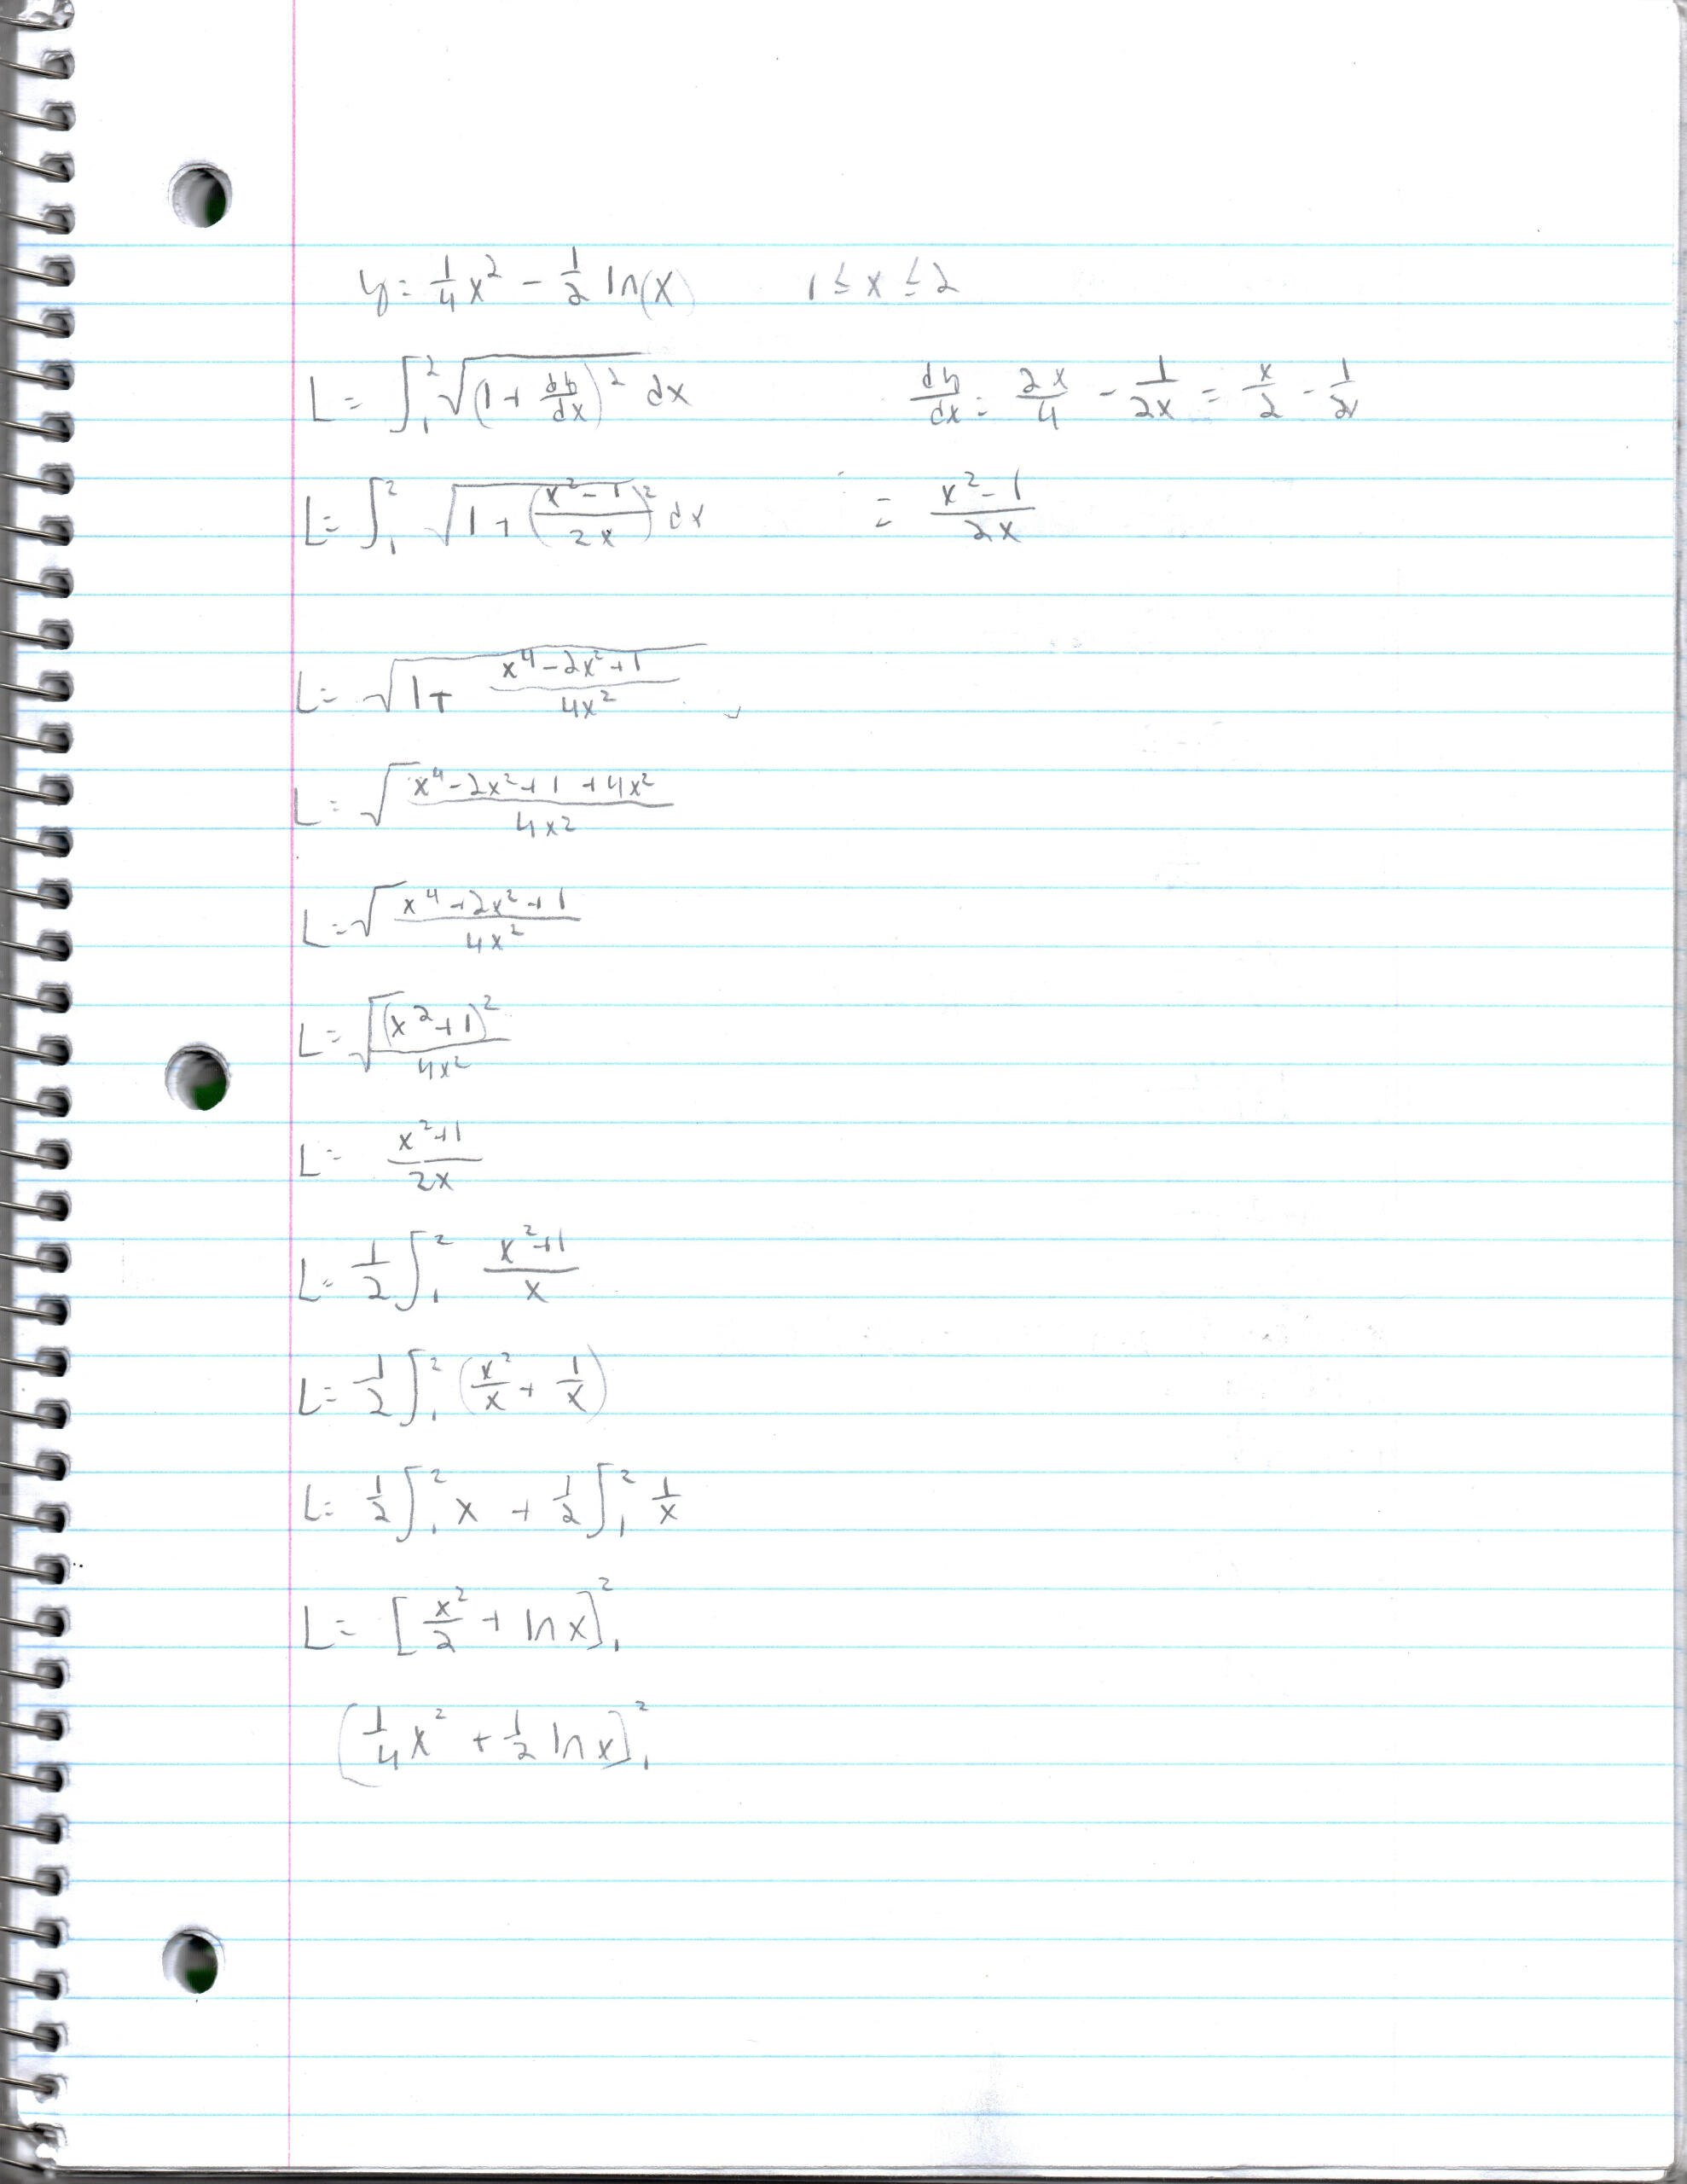 y = 1/4 x² - 1/2 ln(x)    1 ≤ x ≤ 2
L = ∫₁² √(1 + dy/dx)² dx    dy/dx = 2x/4 - 1/2x = x/2 - 1/2x
L = ∫₁² √1 + (x² - 1/2x)² dx    = x² - 1/2x
L = √1 + x⁴ - 2x² + 1/4x²
L = √x⁴ - 2x² + 1 + 4x²/4x²
L = √x⁴ + 2x² + 1/4x²
L = √(x² + 1)²/4x²
L = x² + 1/2x
L = 1/2 ∫₁² x² + 1/x
L = 1/2 ∫₁² (x²/x + 1/x)
L = 1/2 ∫₁² x + 1/2 ∫₁² 1/x
L = [x²/2 + ln x]₁²
[1/4 x² + 1/2 ln x]₁²